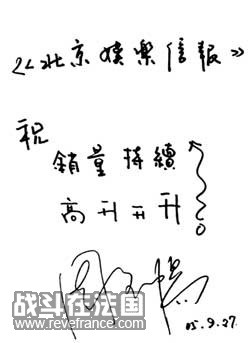 《北京娱樂信報》
祝
銷量持續
高升升升
05.9.27
战斗在法国
www.revefrance.com